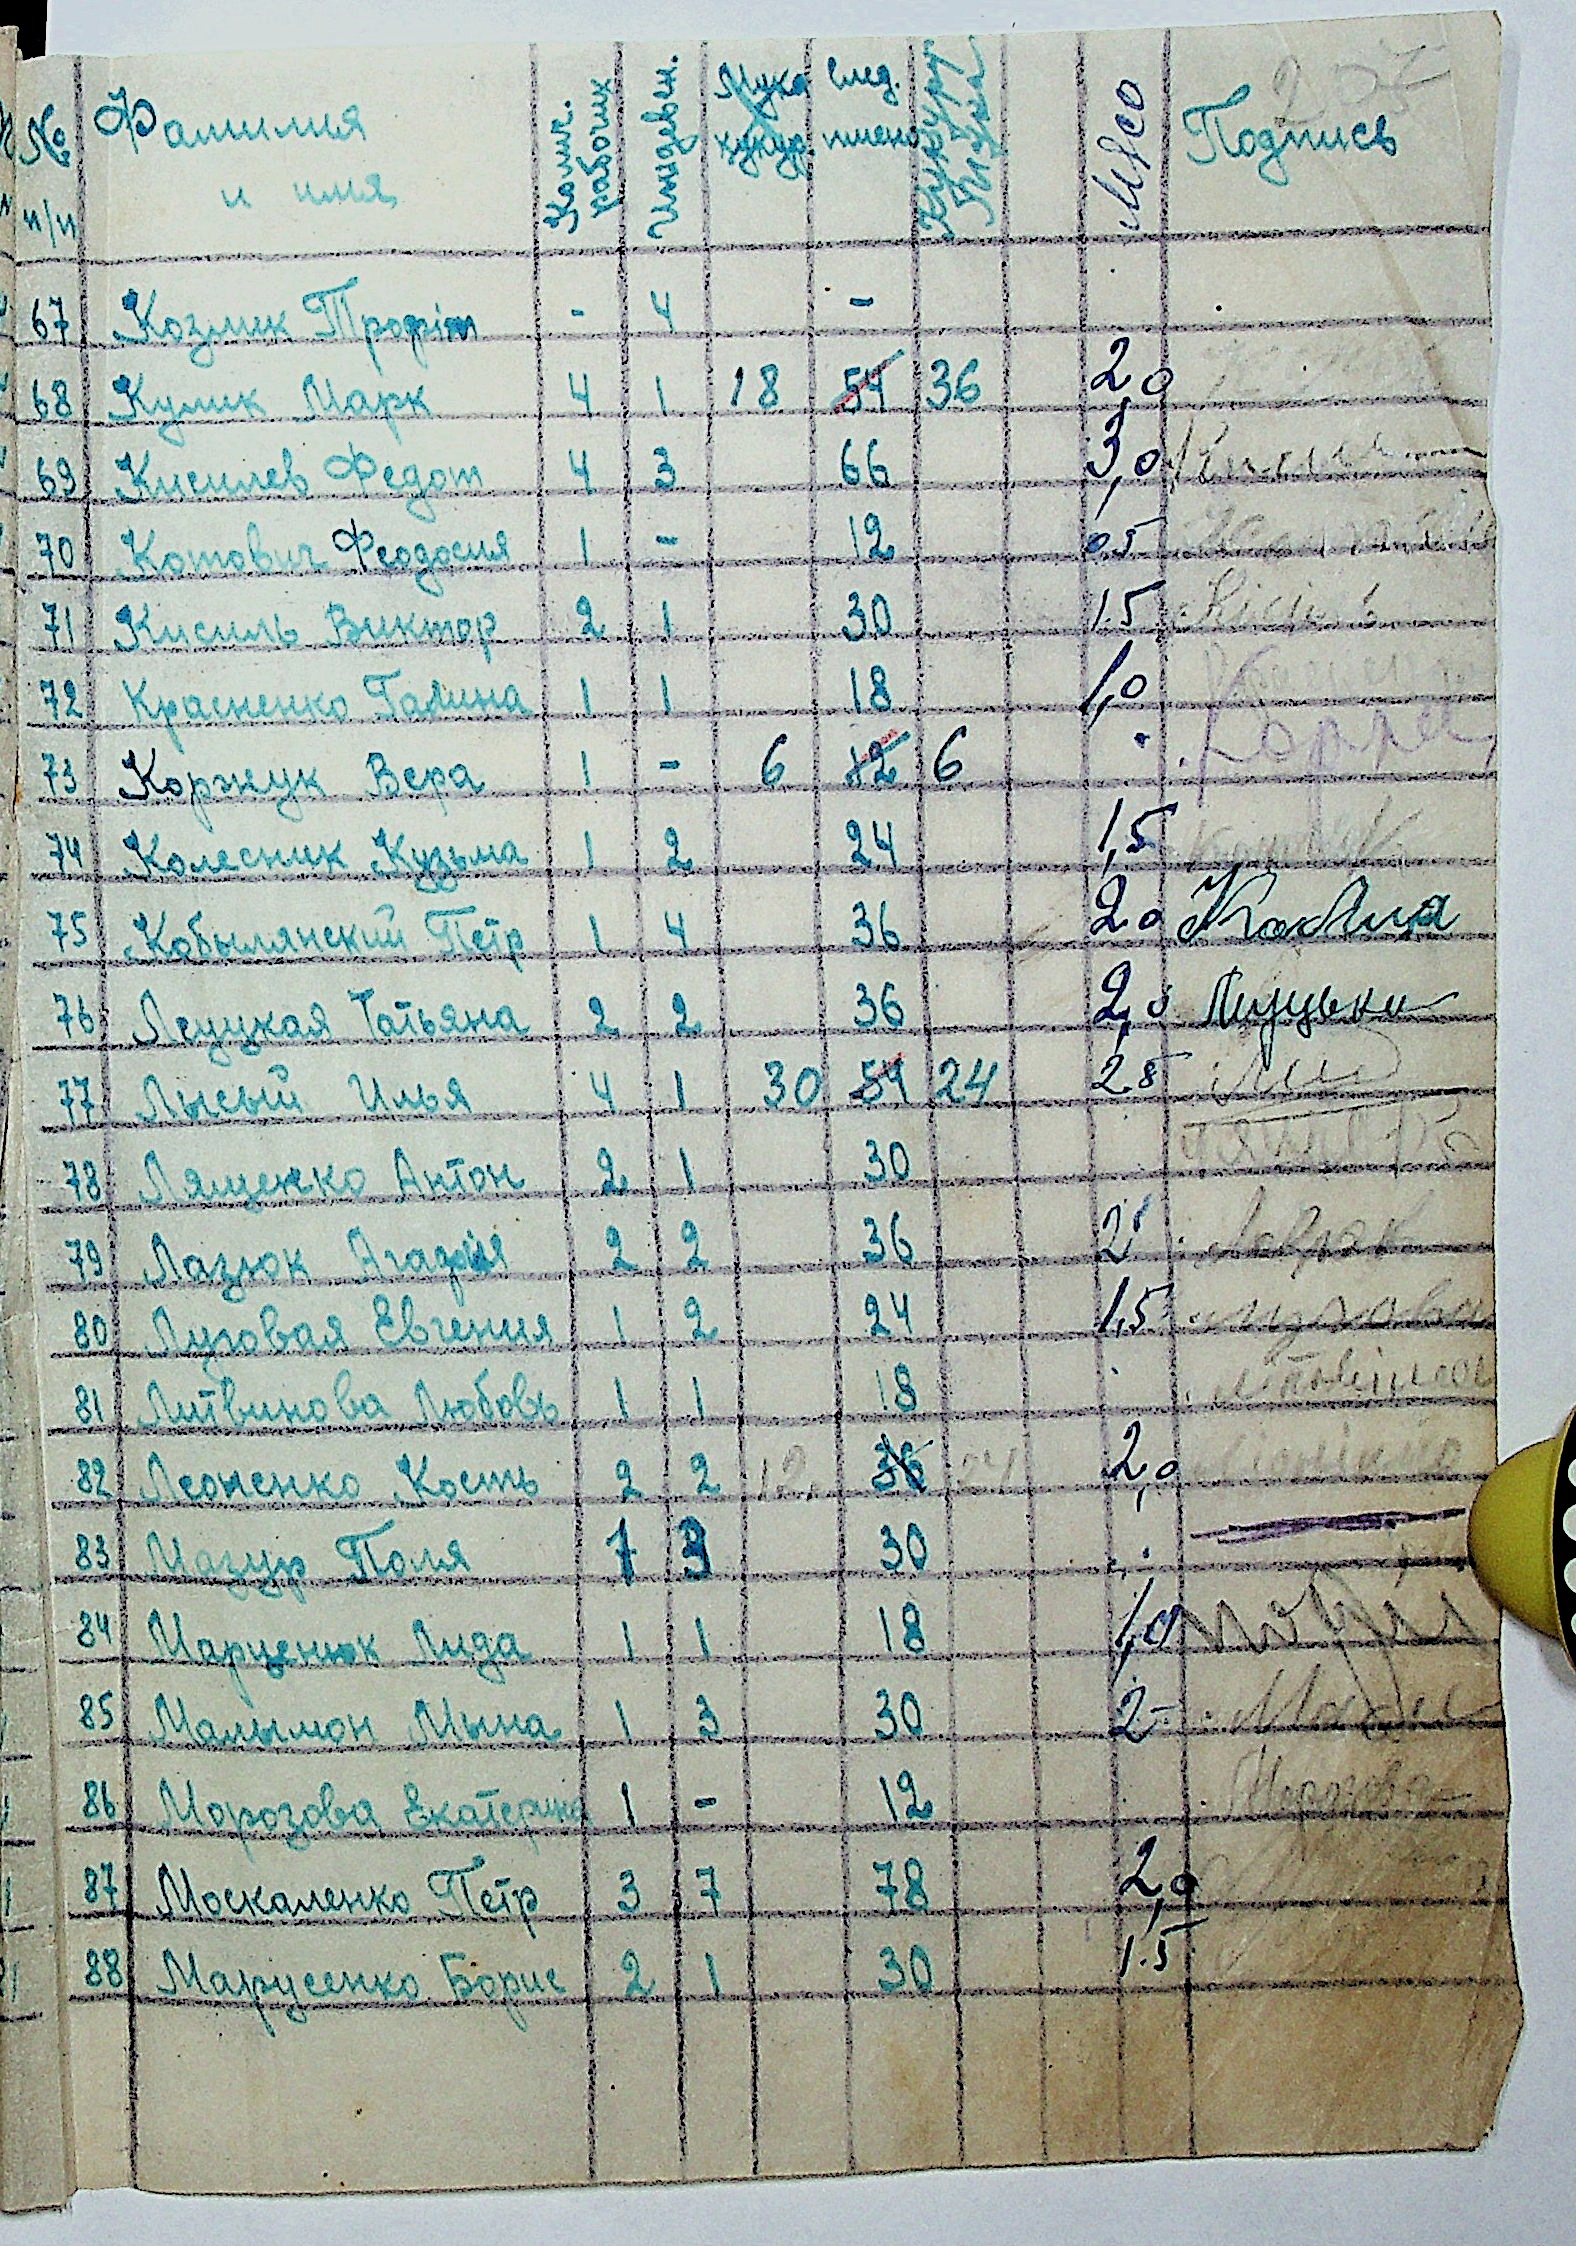 № п/п Фамилия и имя Колич. рабочих Иждевен. Мука кукур. след. пшено Мясо Подпись
67 Козлик Трофім - 4 -
68 Кулик Марк 4 1 18 54 36 2,0
69 Кисилев Федот 4 3 66 3,0
70 Котович Феодосия 1 - 12 0,5
71 Кисиль Виктор 2 1 30 1.5 Кісіль
72 Красненко Галина 1 1 18 1,0
73 Коржук Вера 1 - 6 12 6
74 Колесник Кузьма 1 2 24 1,5
75 Кобылянский Петр 1 4 36 2,0
76 Леуцкая Татьяна 2 2 36 2,0
77 Лысый Илья 4 1 30 54 24 2,5
78 Лященко Антон 2 1 30
79 Лазюк Агафія 2 2 36 2
80 Луговая Евгения 1 2 24 1,5
81 Литвинова Любовь 1 1 18
82 Леоненко Кость 2 2 12 36 24 2,0
83 Мазур Поля 1 3 30
84 Марценюк Лида 1 1 18 1,0
85 Малымон Мына 1 3 30 2-
86 Морозова Екатерина 1 - 12 Морозова
87 Москаленко Петр 3 7 78 2,0
88 Марусенко Борис 2 1 30 1.5